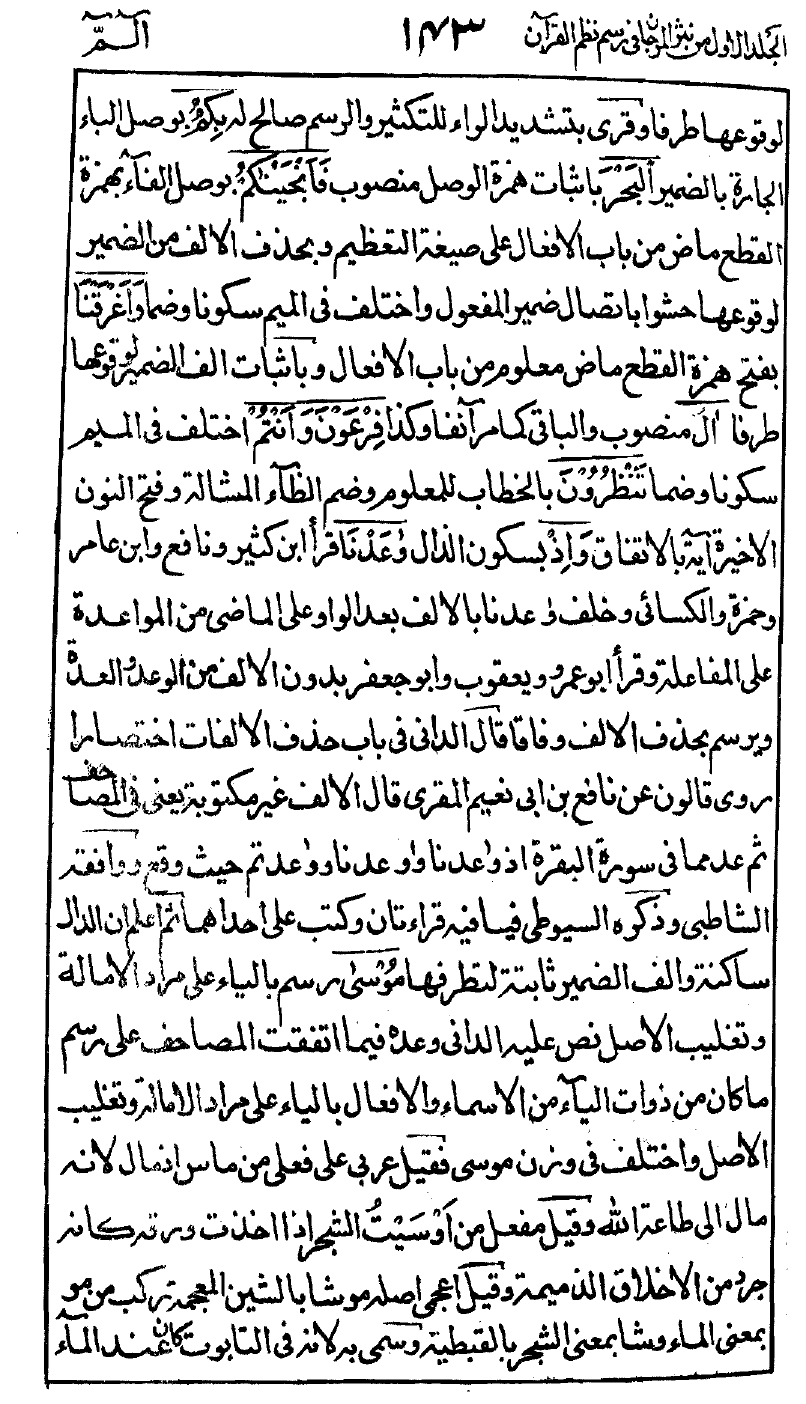 الجلد الاول من نثر المرجان في رسم نظم القرآن ١٤٣ الٓمّٓ
لوقوعها طرفا وقرئ بتشديد الراء للتكثير والرسم صالح له بِكُمُ بوصل الباء
الجارة بالضمير الْبَحْرَ باثبات همزة الوصل منصوب فَاَنْجَيْنٰكُمْ بوصل الفآء بهمزة
القطع ماض من باب الافعال على صيغة التعظيم وبحذف الالف من الضمير
لوقوعها حشوا باتصال ضمير المفعول واختلف فى الميم سكونا وضما وَاَغْرَقْنَا
بفتح همزة القطع ماض معلوم من باب الافعال وباثبات الف الضمير لوقوعها
طرفا اٰلَ منصوب والباقى كما مر آنفا وكذا فِرْعَوْنَ وَاَنْتُمْ اختلف فى الميم
سكونا وضما تَنْظُرُوْنَ بالخطاب للمعلوم وضم الظآء المشالة وفتح النون
الاخيرة آية بالاتفاق وَاِذْ بسكون الذال وٰعَدْنَا قرأ ابن كثير ونافع وابن عامر
وحمزة والكسائى وخلف وٰعدنا بالالف بعد الواو على الماضى من المواعدة
على المفاعلة وقرأ ابو عمرو ويعقوب وابو جعفر بدون الالف من الوعد والعدة
ويرسم بحذف الالف وفاقا قال الدانى فى باب حذف الالفات اختصارا
روى قالون عن نافع بن ابى نعيم المقرى قال الالف غير مكتوبة يعنى فى المصاحف
ثم عد مما فى سورة البقرة اذ وٰعدنا واوٰعدنا ووٰعدتم حيث وقع ووافقه
الشاطبى وذكره السيوطى فيما فيه قراءتان وكتب على احداهما ثم اعلم ان الدال
ساكنة والف الضمير ثابتة لتطرفها مُوْسٰى رسم بالياء على مراد الامالة
وتغليب الاصل نص عليه الدانى وعده فيما اتفقت المصاحف على رسم
ما كان من ذوات اليآء من الاسماء والافعال بالياء على مراد الامالة وتغليب
الاصل واختلف فى وزن موسى فقيل عربى على فعلى من ماس اذ مال لانه
مال الى طاعة الله وقيل مفعل من اَوْسَيْتُ الشجر اذا اخذت ورقه كانه
جرد من الاخلاق الذميمة وقيل اعجمى اصله موشا بالشين المعجمة تركب من مو
بمعنى الماء وشا بمعنى الشجر بالقبطية وسمى به لانه فى التابوت كان عند المآء